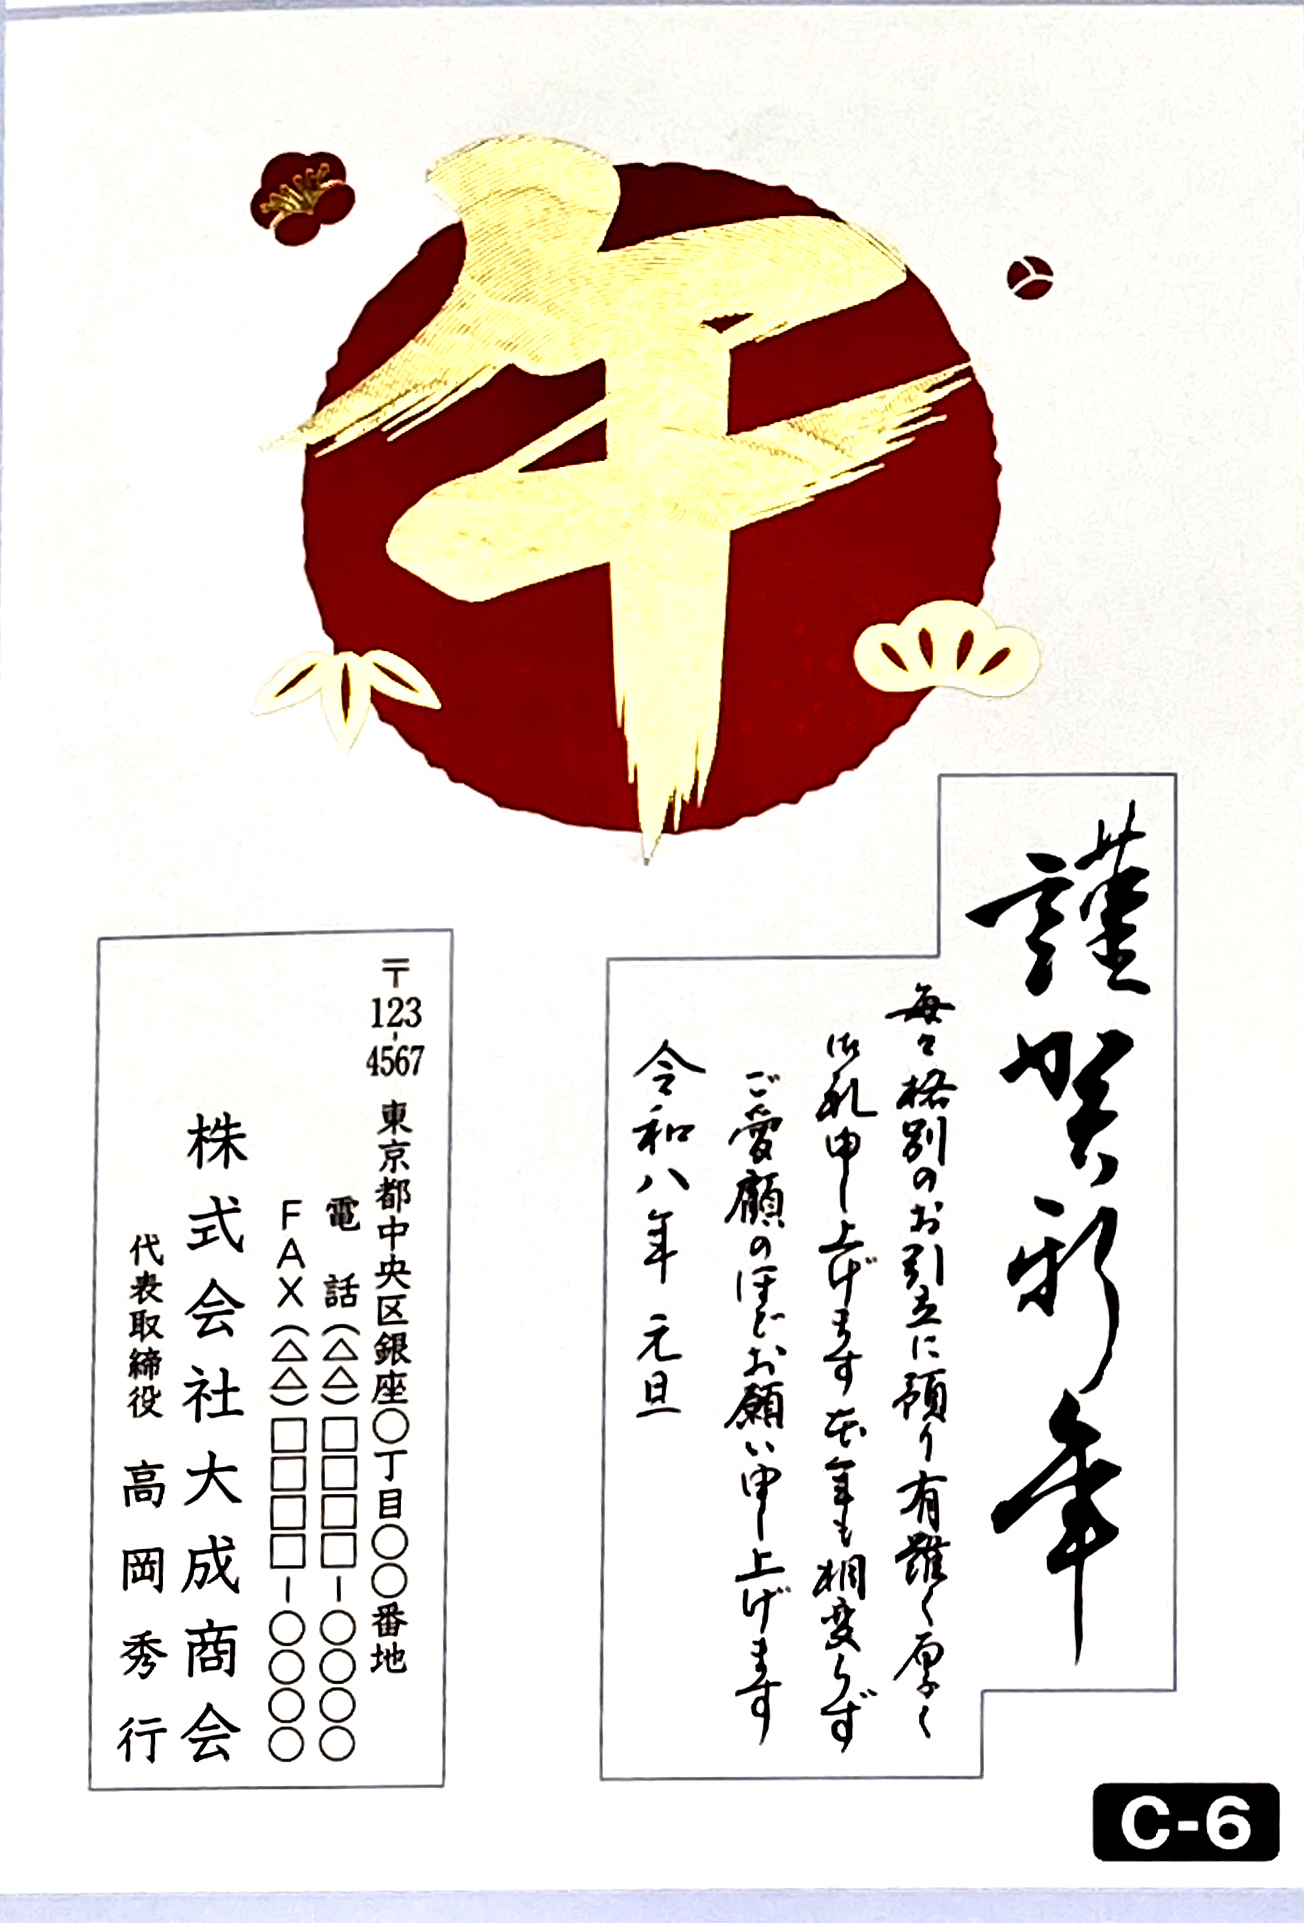 午
謹賀新年
毎々格別のお引立に預り有難く厚く
御礼申し上げます 本年も相変らず
ご愛顧のほどお願い申し上げます
令和八年 元旦
〒123-4567 東京都中央区銀座〇丁目〇〇番地
電話(△△)□□□□-〇〇〇〇
FAX(△△)□□□□-〇〇〇〇
株式会社大成商会
代表取締役 高岡秀行
C-6